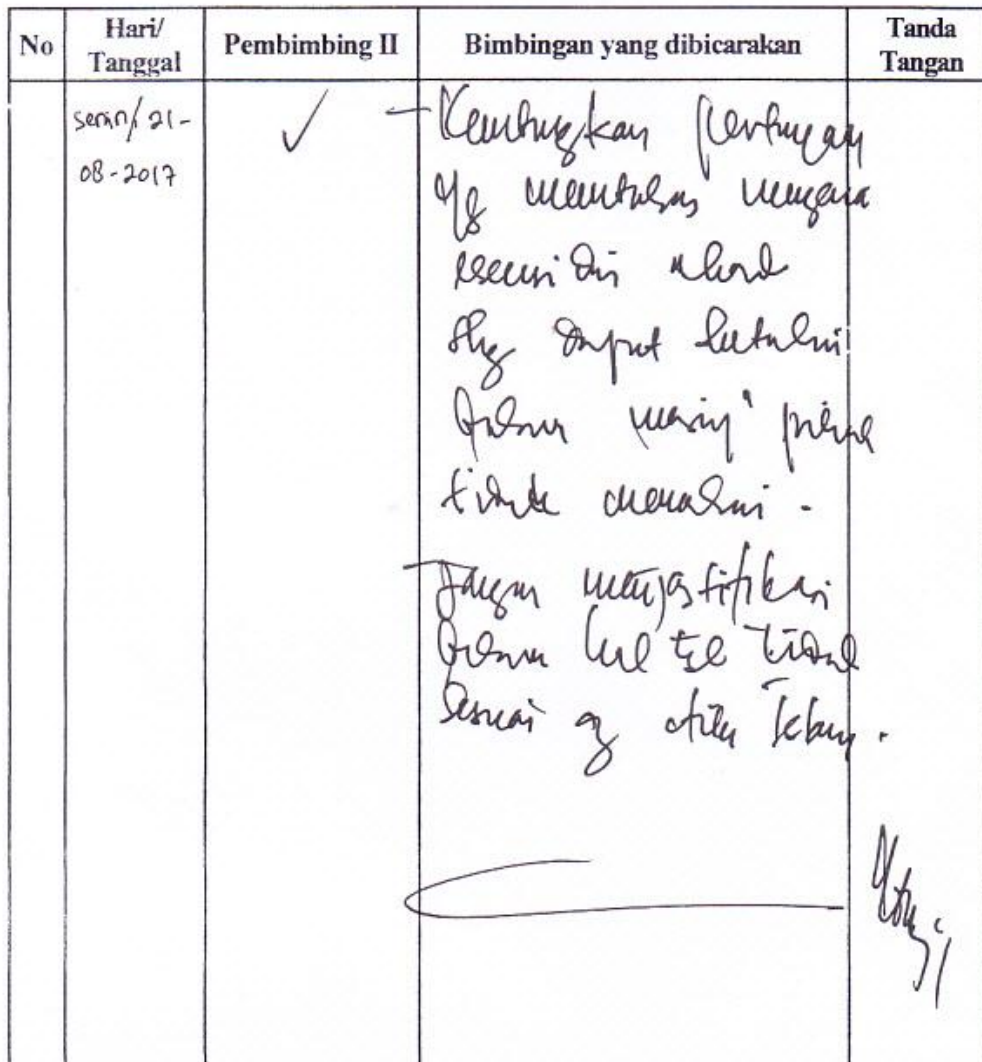 No Hari/ Tanggal Pembimbing II Bimbingan yang dibicarakan Tanda Tangan
Senin/ 21-
08-2017
- Kembangkan pertanyaan
yg membahas mengenai
esensi dri akad
shg dapat
bahwa masing" pihak
tidak
- Jangan menjastifikasi
bahwa hal tsb tidak
sesuai dg